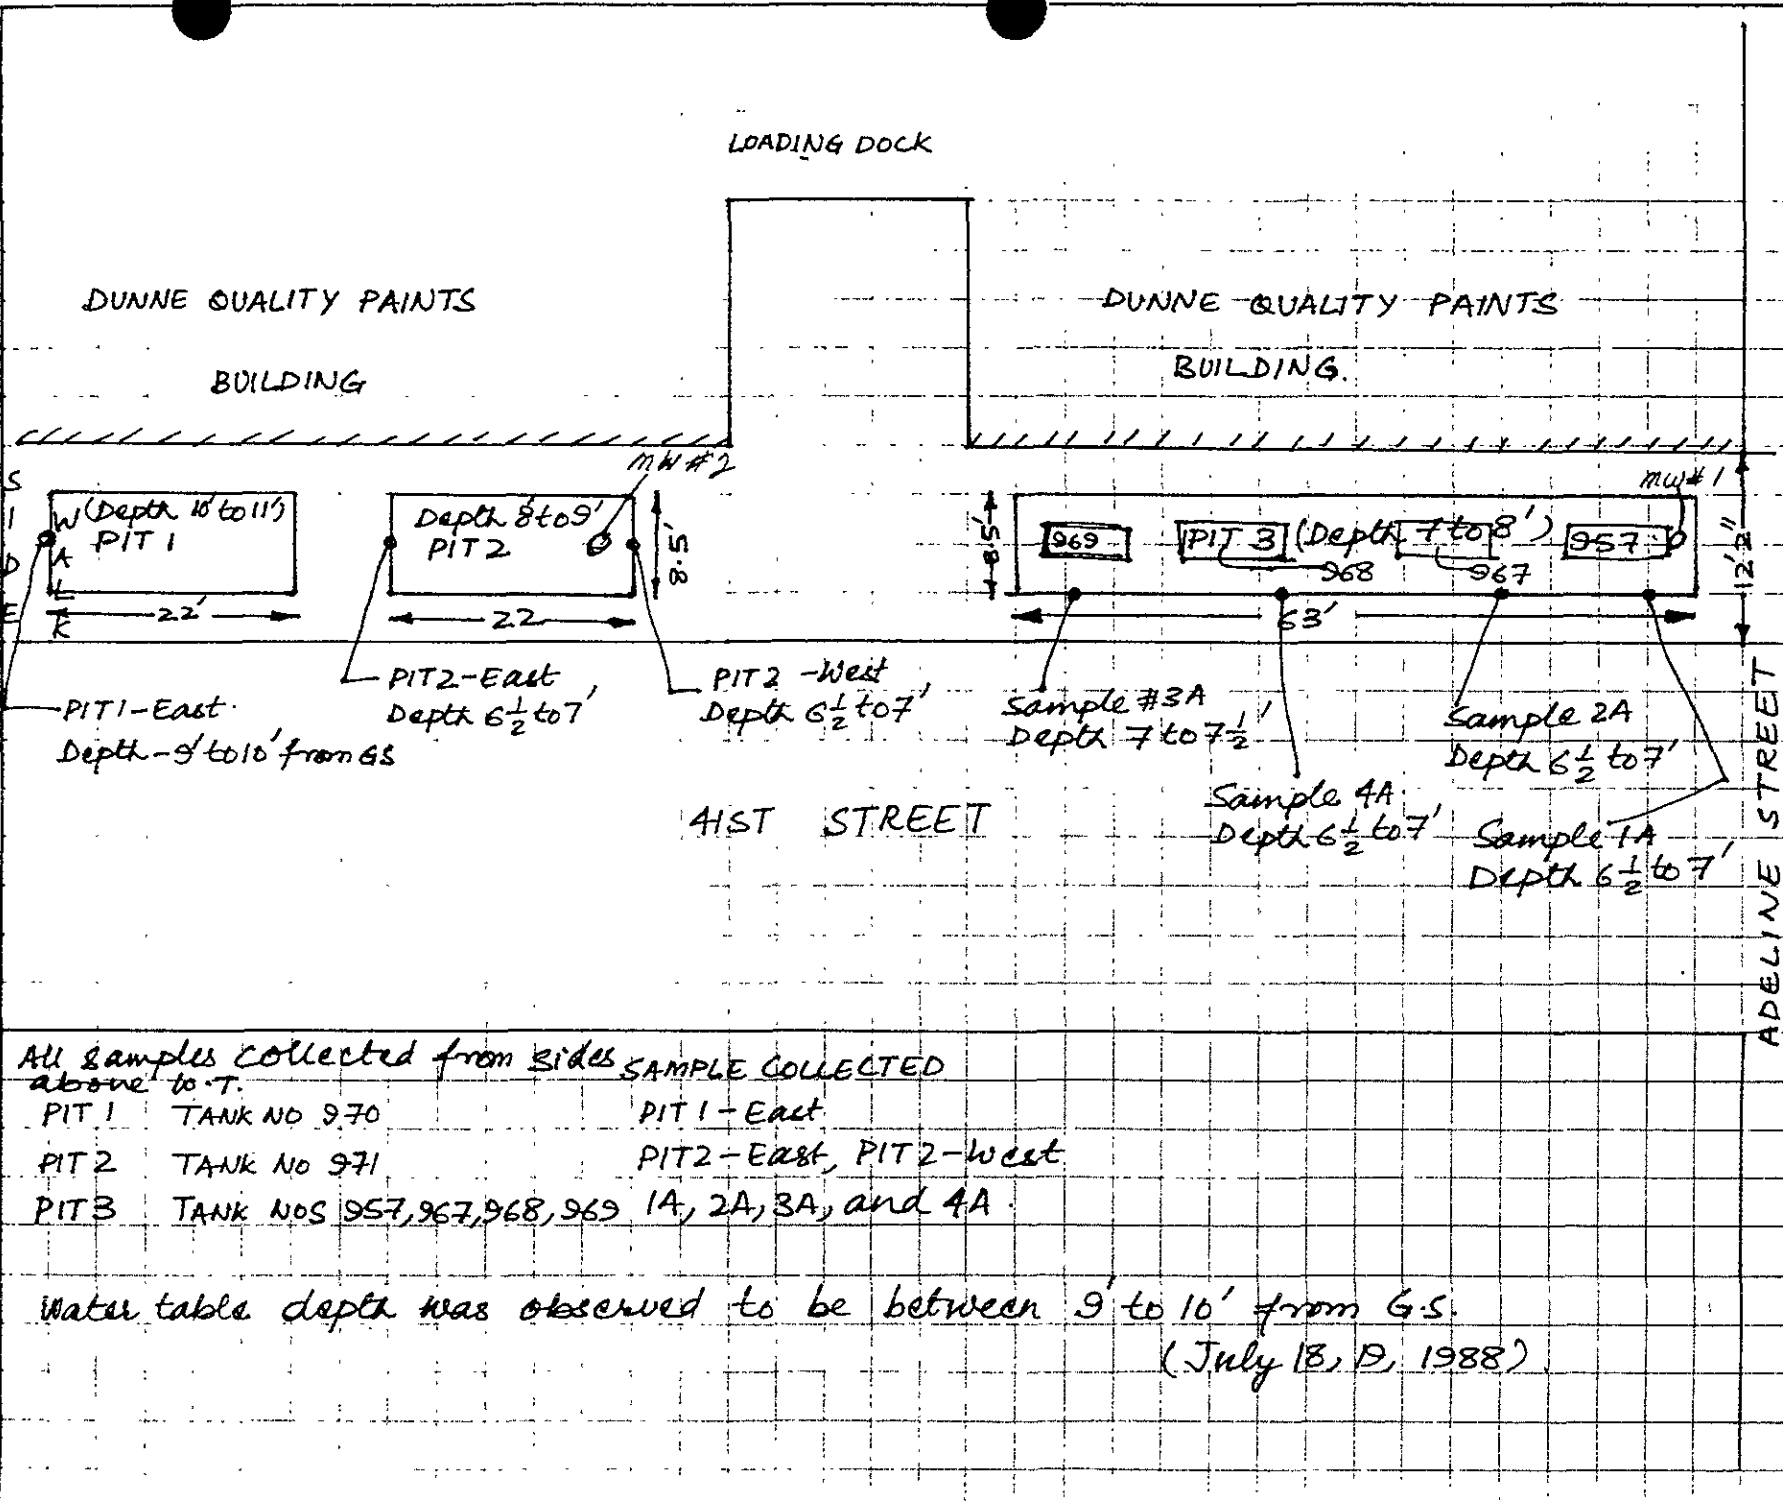 LOADING DOCK
DUNNE QUALITY PAINTS
BUILDING
DUNNE QUALITY PAINTS
BUILDING.
SIDE
WALK
(Depth 10' to 11')
PIT 1
22'
MW #2
Depth 8' to 9'
PIT 2
8.5'
22
8.5'
969
PIT 3 (Depth 7 to 8')
968
967
957
MW #1
63'
12'2"
PIT1-East
Depth - 9' to 10' from GS
PIT2-East
Depth 6 1/2 to 7'
PIT 2 -West
Depth 6 1/2 to 7'
Sample #3A
Depth 7 to 7 1/2'
Sample 4A
Depth 6 1/2 to 7'
Sample 2A
Depth 6 1/2 to 7'
Sample 1A
Depth 6 1/2 to 7'
41ST STREET
ADELINE STREET
All samples collected from sides
above W.T.
SAMPLE COLLECTED
PIT 1 TANK NO 970 PIT 1 - East
PIT 2 TANK NO 971 PIT2 - East, PIT 2 - West
PIT 3 TANK NOS 957, 967, 968, 969 1A, 2A, 3A, and 4A.
Water table depth was observed to be between 9' to 10' from G.S.
(July 18, 19, 1988)